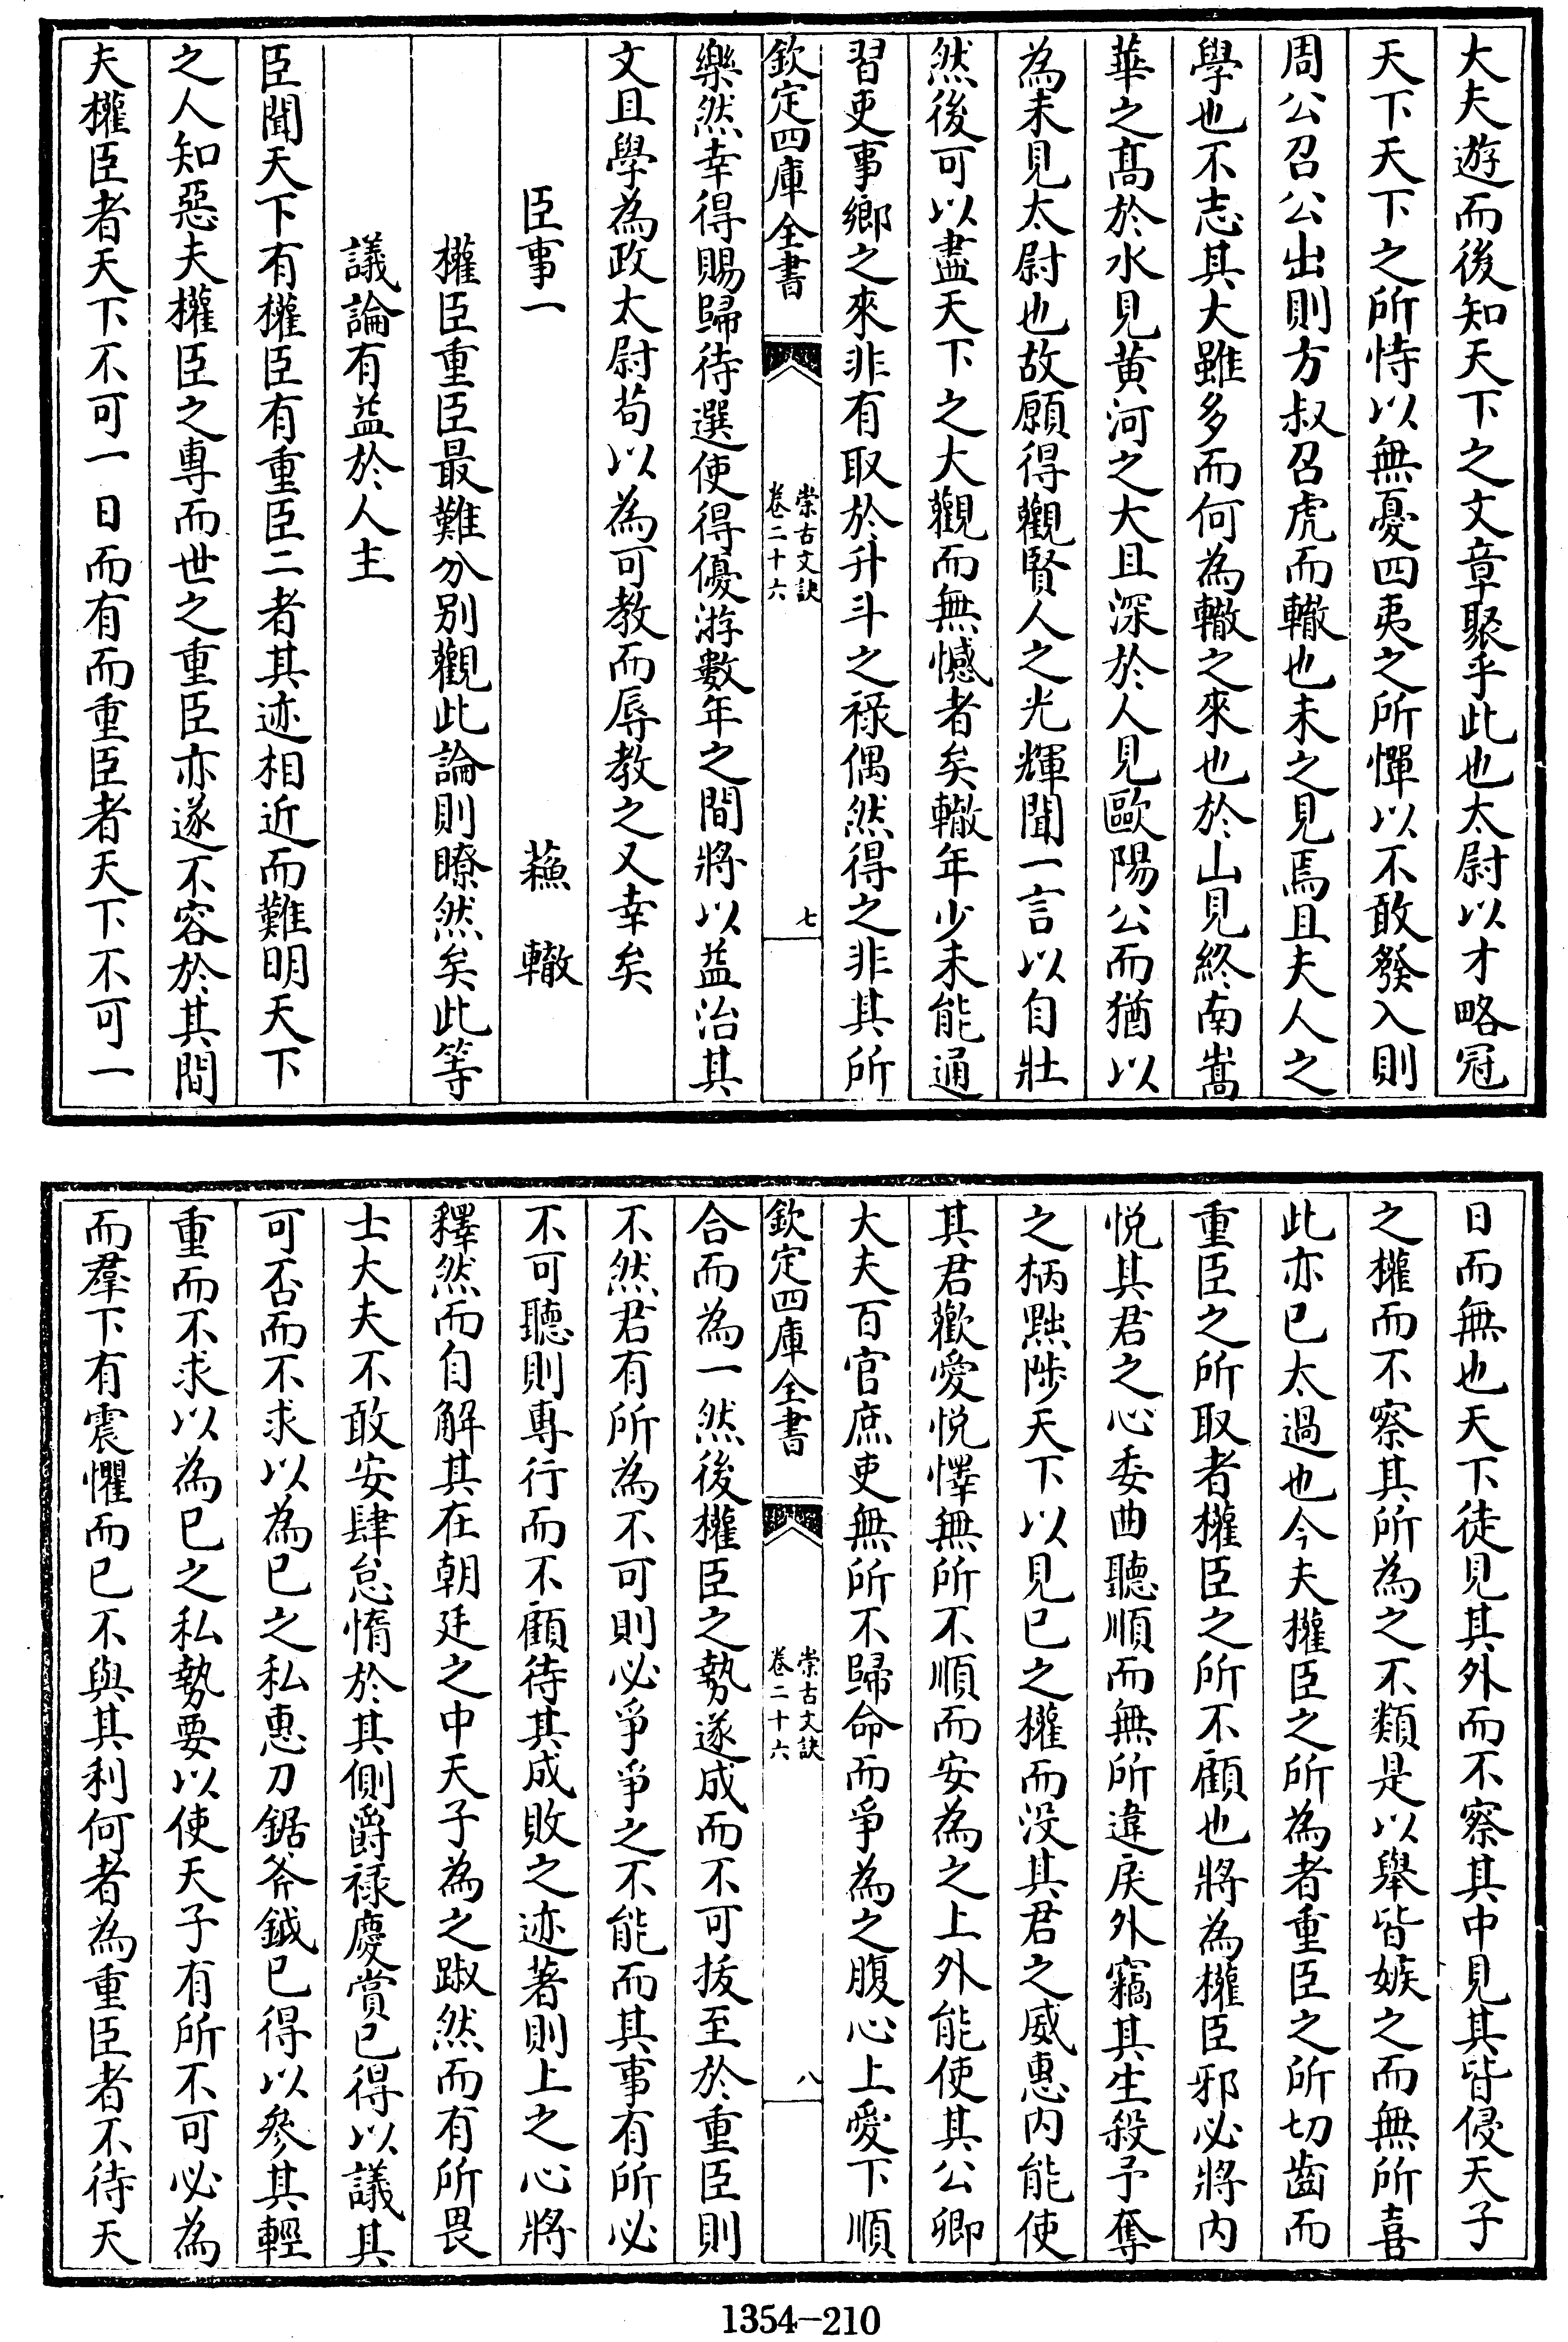 大夫遊而後知天下之文章聚乎此也太尉以才略冠
天下天下之所恃以無憂四夷之所憚以不敢發入則
周公召公出則方叔召虎而轍也未之見焉且夫人之
學也不志其大雖多而何為轍之來也於山見終南嵩
華之髙於水見黄河之大且深於人見歐陽公而猶以
為未見太尉也故願得觀賢人之光輝聞一言以自壯
然後可以盡天下之大觀而無憾者矣轍年少未能通
習吏事鄉之來非有取於升斗之禄偶然得之非其所
欽定四庫全書
崇古文訣
卷二十六
七
樂然幸得賜歸待選使得優游數年之間將以益治其
文且學為政太尉苟以為可教而辱教之又幸矣
臣事一 蘓轍
權臣重臣最難分别觀此論則瞭然矣此等
議論有益於人主
臣聞天下有權臣有重臣二者其迹相近而難明天下
之人知惡夫權臣之專而世之重臣亦遂不容於其間
夫權臣者天下不可一日而有而重臣者天下不可一
日而無也天下徒見其外而不察其中見其皆侵天子
之權而不察其所為之不類是以舉皆嫉之而無所喜
此亦已太過也今夫權臣之所為者重臣之所切齒而
重臣之所取者權臣之所不顧也將為權臣邪必將内
悦其君之心委曲聽順而無所違戾外竊其生殺予奪
之柄黜陟天下以見已之權而没其君之威惠内能使
其君歡愛悦懌無所不順而安為之上外能使其公卿
大夫百官庶吏無所不歸命而爭為之腹心上愛下順
欽定四庫全書
崇古文訣
卷二十六
八
合而為一然後權臣之勢遂成而不可拔至於重臣則
不然君有所為不可則必爭爭之不能而其事有所必
不可聽則專行而不顧待其成敗之迹著則上之心將
釋然而自解其在朝廷之中天子為之踧然而有所畏
士大夫不敢安肆怠惰於其側爵禄慶賞已得以議其
可否而不求以為已之私惠刀鋸斧鉞已得以參其輕
重而不求以為已之私勢要以使天子有所不可必為
而羣下有震懼而已不與其利何者為重臣者不待天
1354-210